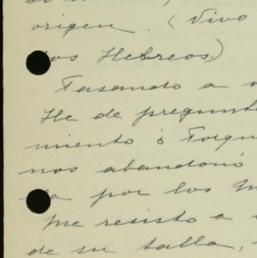 origen. (Vivo
los Hebreos.)
Pasando a
He de pregunt
miento ó Torqu
nos abandonó
por los
me resisto a
de su talla,